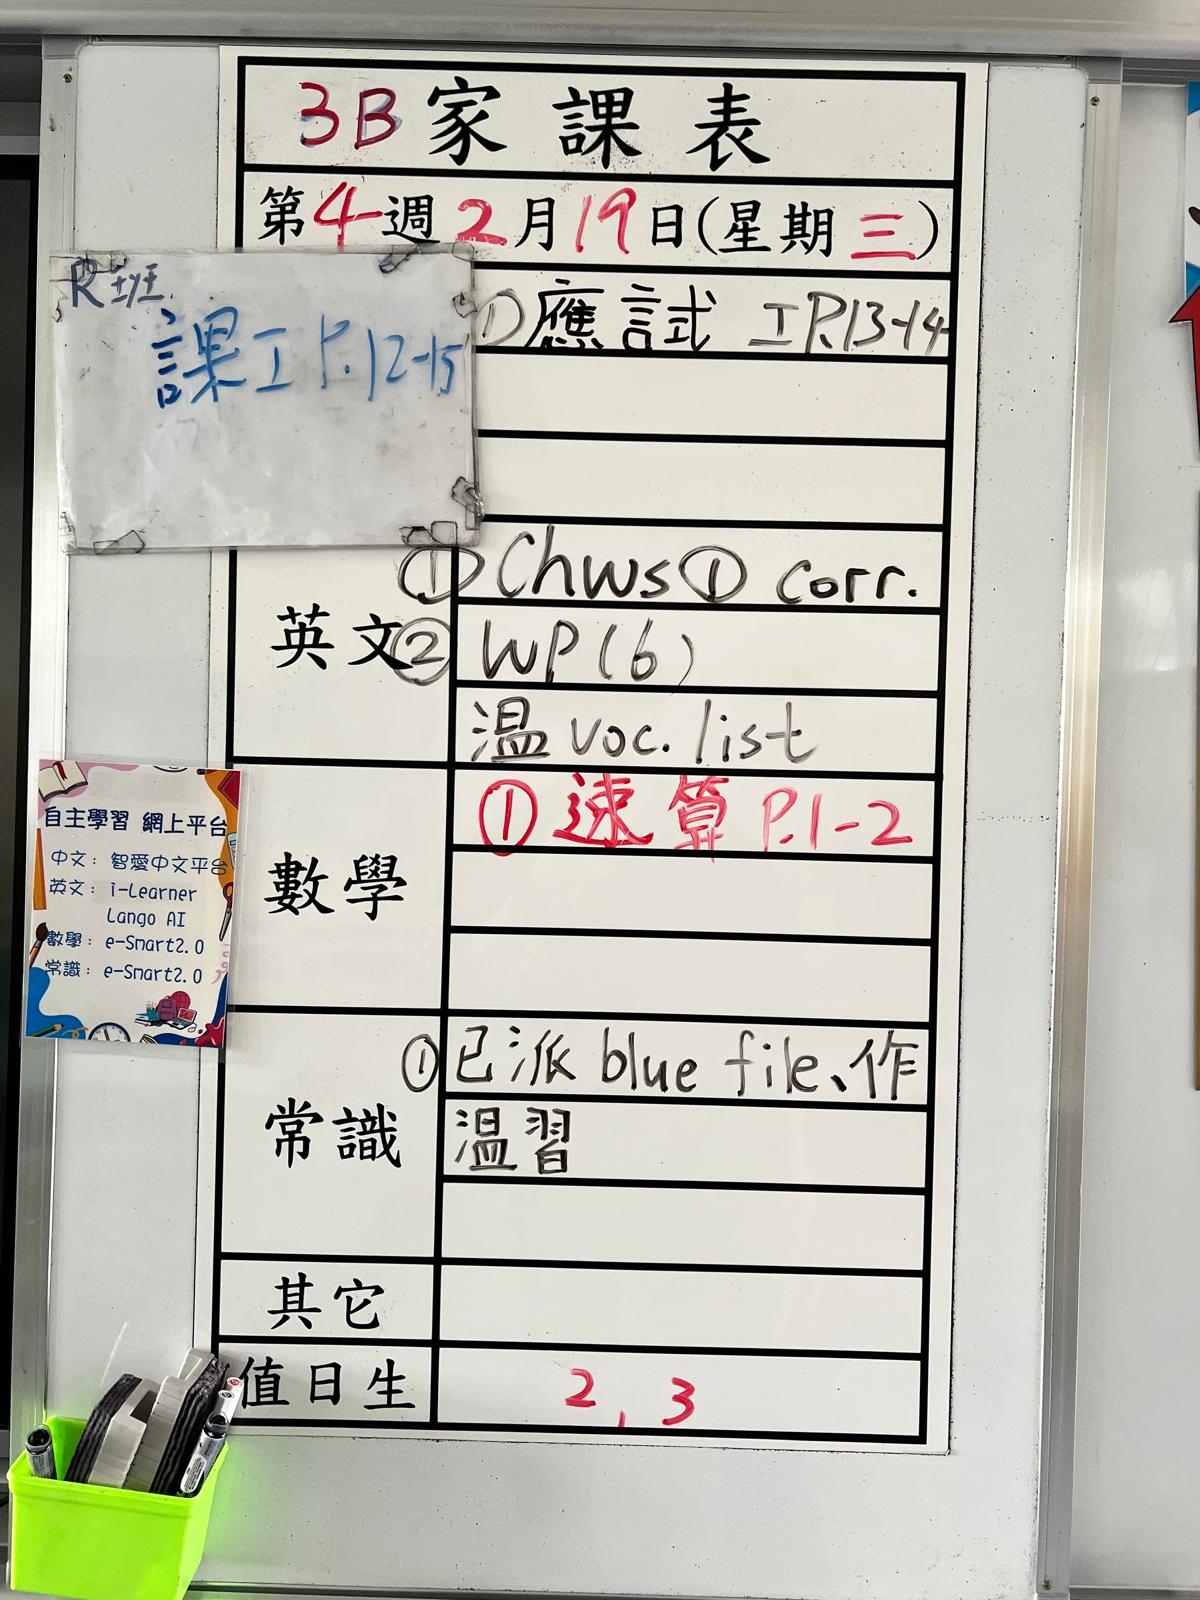 3B家課表
第4週2月19日(星期三)
R班
課工P.12-15
①應試 工P.13-14
英文
①Chws① corr.
②WP(6)
溫voc. list
數學
①速算P.1-2
自主學習 網上平台
中文：智愛中文平台
英文：i-Learner
Lango AI
數學：e-Smart2.0
常識：e-Smart2.0
常識
①已派blue file、作
溫習
其它
值日生
2,3